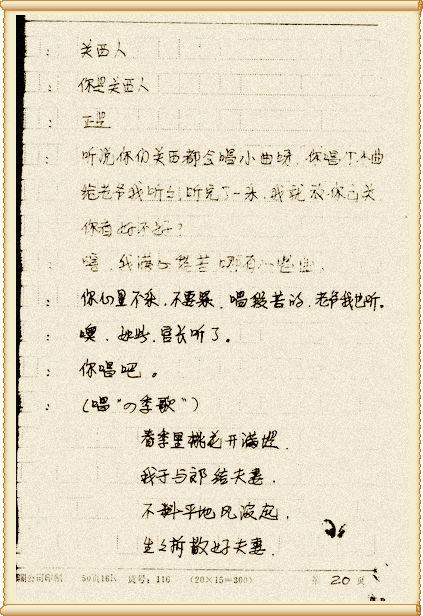 : 关西人
: 你是关西人
: 正是
: 听说你们关西都会唱小曲呀，你唱个小曲
给老爷我听，听完了一，我就放你过关
你看好不好？
: 唉，我满心愁苦哪有心
: 你心里不乐，不要紧，唱段苦的，老爷我也听。
: 噢，如此，官长听了。
: 你唱吧。
: （唱“四季歌”）
春季里桃花开满堤，
我于与郎结夫妻，
不料平地风波起，
生生拆散好夫妻，
刷公司印制 50页16K 货号：116 （20×15=300） 第 20 页